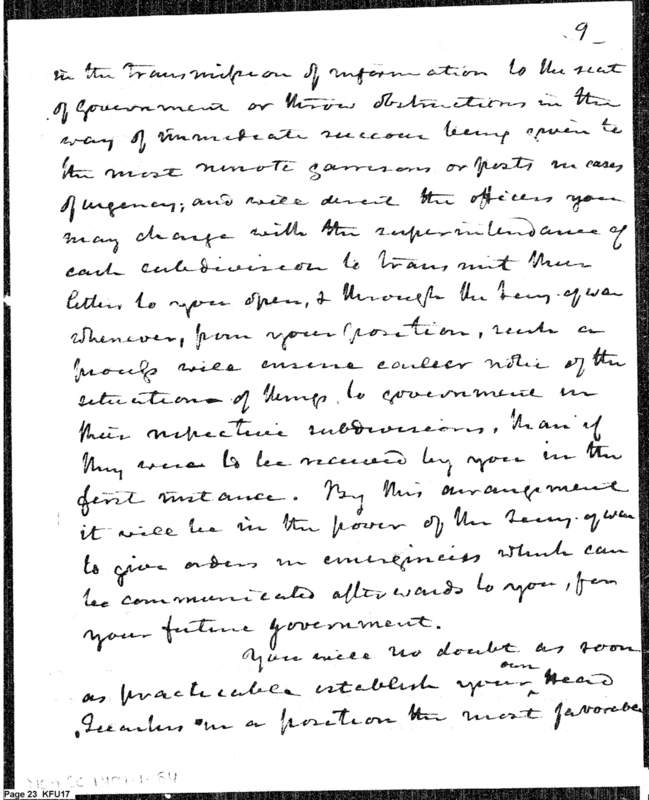 9
in the transmission of information to the seat
of government or throw obstructions in the
way of immediate succour being given to
the most remote garrisons or posts in cases
of urgency; and will direct the officers you
may charge with the superintendance of
each subdivision to transmit their
letters to you open, & through the Secy. of war
whenever, from your position, such a
will ensure earlier notice of the
situation of things to government in
their respective subdivisions, than if
they were to be received by you in the
first instance. By this arrangement
it will be in the power of the Secy. of war
to give orders in emergencies which can
be communicated afterwards to you, for
your future government.
You will no doubt as soon
as practicable establish your own Head
Quarters in a position the most favorable
Page 23 KFU17